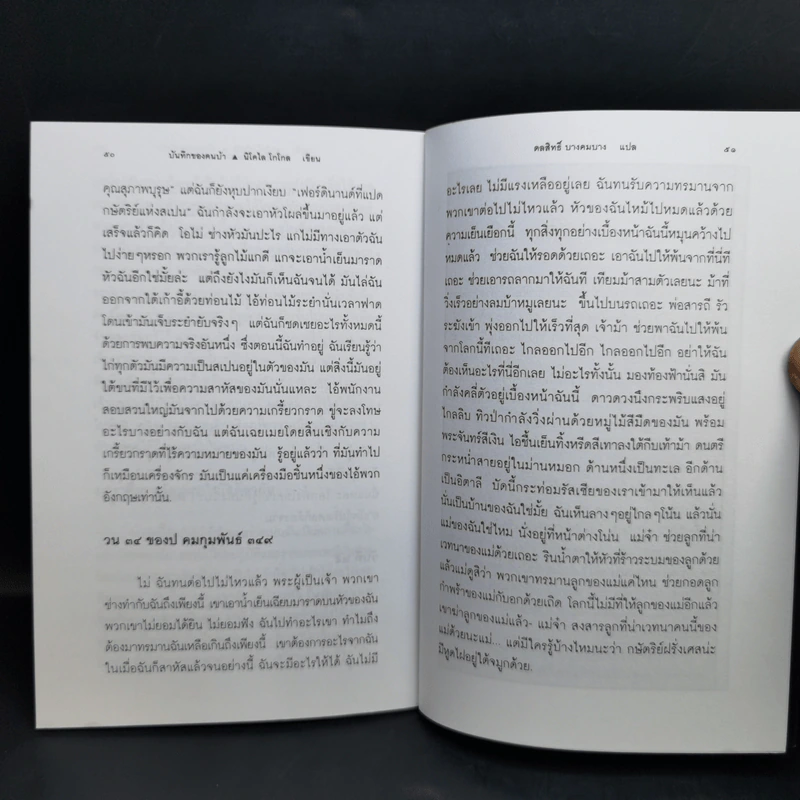 ๕๐ บันทึกของคนบ้า ▲ นิโคไล โกโกล เขียน
คุณสุภาพบุรุษ" แต่ฉันก็ยังหุบปากเงียบ "เฟอร์ดินานด์ที่แปด
กษัตริย์แห่งสเปน" ฉันกำลังจะเอาหัวโผล่ขึ้นมาอยู่แล้ว แต่
เสร็จแล้วก็คิด โอไม่ ช่างหัวมันปะไร แกไม่มีทางเอาตัวฉัน
ไปง่ายๆหรอก พวกเรารู้ลูกไม้แกดี แกจะเอาน้ำเย็นมาราด
หัวฉันอีกใช่มั้ยล่ะ แต่ถึงยังไงมันก็เห็นฉันจนได้ มันไล่ฉัน
ออกจากใต้เก้าอี้ด้วยท่อนไม้ ไอ้ท่อนไม้ระยำนั่นเวลาฟาด
โดนเข้ามันเจ็บระยำยับจริงๆ แต่ฉันก็ชดเชยอะไรทั้งหมดนี้
ด้วยการพบความจริงอันหนึ่ง ซึ่งตอนนี้ฉันทำอยู่ ฉันเรียนรู้ว่า
ไก่ทุกตัวมันมีความเป็นสเปนอยู่ในตัวของมัน แต่สิ่งนี้มันอยู่
ใต้ขนที่มีไว้เพื่อความสาหัสของมันนั่นแหละ ไอ้พนักงาน
สอบสวนใหญ่มันจากไปด้วยความเกรี้ยวกราด ขู่จะลงโทษ
อะไรบางอย่างกับฉัน แต่ฉันเฉยเมยโดยสิ้นเชิงกับความ
เกรี้ยวกราดที่ไร้ความหมายของมัน รู้อยู่แล้วว่า ที่มันทำไป
ก็เหมือนเครื่องจักร มันเป็นแค่เครื่องมือชิ้นหนึ่งของไอ้พวก
อังกฤษเท่านั้น.
วน ๓๔ ของป คมกุมพันธ์ ๓๔๙
ไม่ ฉันทนต่อไปไม่ไหวแล้ว พระผู้เป็นเจ้า พวกเขา
ช่างทำกับฉันถึงเพียงนี้ เขาเอาน้ำเย็นเฉียบมาราดบนหัวของฉัน
พวกเขาไม่ยอมได้ยิน ไม่ยอมฟัง ฉันไปทำอะไรเขา ทำไมถึง
ต้องมาทรมานฉันเหลือเกินถึงเพียงนี้ เขาต้องการอะไรจากฉัน
ในเมื่อฉันก็สาหัสแล้วจนอย่างนี้ ฉันจะมีอะไรให้ได้ ฉันไม่มี
ดลสิทธิ์ บางคมบาง แปล ๕๑
อะไรเลย ไม่มีแรงเหลืออยู่เลย ฉันทนรับความทรมานจาก
พวกเขาต่อไปไม่ไหวแล้ว หัวของฉันไหม้ไปหมดแล้วด้วย
ความเย็นเยือกนี้ ทุกสิ่งทุกอย่างเบื้องหน้าฉันนี้หมุนคว้างไป
หมดแล้ว ช่วยฉันให้รอดด้วยเถอะ เอาฉันไปให้พ้นจากที่นี่ที
เถอะ ช่วยเอารถลากมาให้ฉันที เทียมม้าสามตัวเลยนะ ม้าที่
วิ่งเร็วอย่างลมบ้าหมูเลยนะ ขึ้นไปบนรถเถอะ พ่อสารถี รัว
ระฆังเข้า พุ่งออกไปให้เร็วที่สุด เจ้าม้า ช่วยพาฉันไปให้พ้น
จากโลกนี้ทีเถอะ ไกลออกไปอีก ไกลออกไปอีก อย่าให้ฉัน
ต้องเห็นอะไรที่นี่อีกเลย ไม่อะไรทั้งนั้น มองท้องฟ้านั่นสิ มัน
กำลังคลี่ตัวอยู่เบื้องหน้าฉันนี้ ดาวดวงนึงกระพริบแสงอยู่
ไกลลิบ ทิวป่ากำลังวิ่งผ่านด้วยหมู่ไม้สีมืดของมัน พร้อม
พระจันทร์สีเงิน ไอชื้นเย็นทิ้งหรีดสีเทาลงใต้กีบเท้าม้า ดนตรี
กระหน่ำสายอยู่ในม่านหมอก ด้านหนึ่งเป็นทะเล อีกด้าน
เป็นอิตาลี บัดนี้กระท่อมรัสเซียของเราเข้ามาให้เห็นแล้ว
นั่นเป็นบ้านของฉันใช่มั้ย ฉันเห็นลางๆอยู่ไกลๆโน้น แล้วนั่น
แม่ของฉันใช่ไหม นั่งอยู่ที่หน้าต่างโน่น แม่จ๋า ช่วยลูกที่น่า
เวทนาของแม่ด้วยเถอะ รินน้ำตาให้หัวที่ร้าวระบมของลูกด้วย
แล้วแม่ดูสิว่า พวกเขาทรมานลูกของแม่แค่ไหน ช่วยกอดลูก
กำพร้าของแม่กับอกด้วยเถิด โลกนี้ไม่มีที่ให้ลูกของแม่อีกแล้ว
เขาฆ่าลูกของแม่แล้ว- แม่จ๋า สงสารลูกที่น่าเวทนาคนนี้ของ
แม่ด้วยนะแม่... แต่มีใครรู้บ้างไหมนะว่า กษัตริย์ฝรั่งเศสน่ะ
มีหูดไฝอยู่ใต้จมูกด้วย.